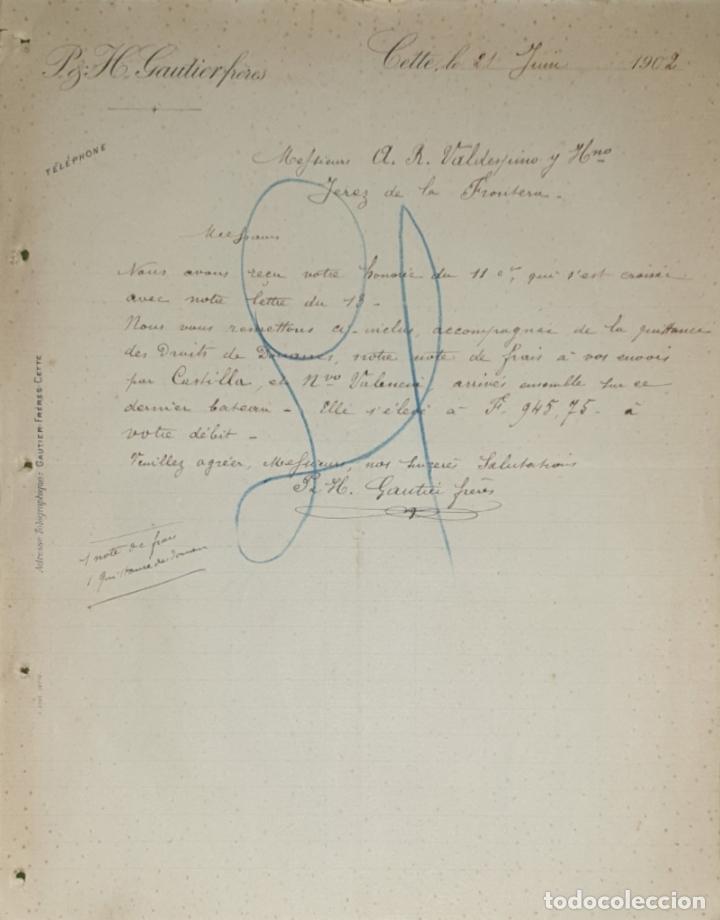 P. & H. Gautier frères
Cette, le 21 Juin 1902
TÉLÉPHONE
Messieurs A. R. Valdespino y Hno
Jerez de la Frontera -
Messieurs
Nous avons reçu votre honorée du 11 ct, qui s'est croisée
avec notre lettre du 13 -
Nous vous remettons ci-inclus, accompagnée de la quittance
des Droits de Douanes, notre note de frais à vos envois
par Castilla, et Nvo Valencia arrivés ensemble sur ce
dernier bateau - Elle s'élève à F. 945,75 - à
votre débit -
Veuillez agréer, Messieurs, nos sincères salutations
P. & H. Gautier frères
1 note de frais
1 quittance de douane
Adresse Télégraphique: GAUTIER-FRÈRES-CETTE
todocoleccion
todocoleccion.net